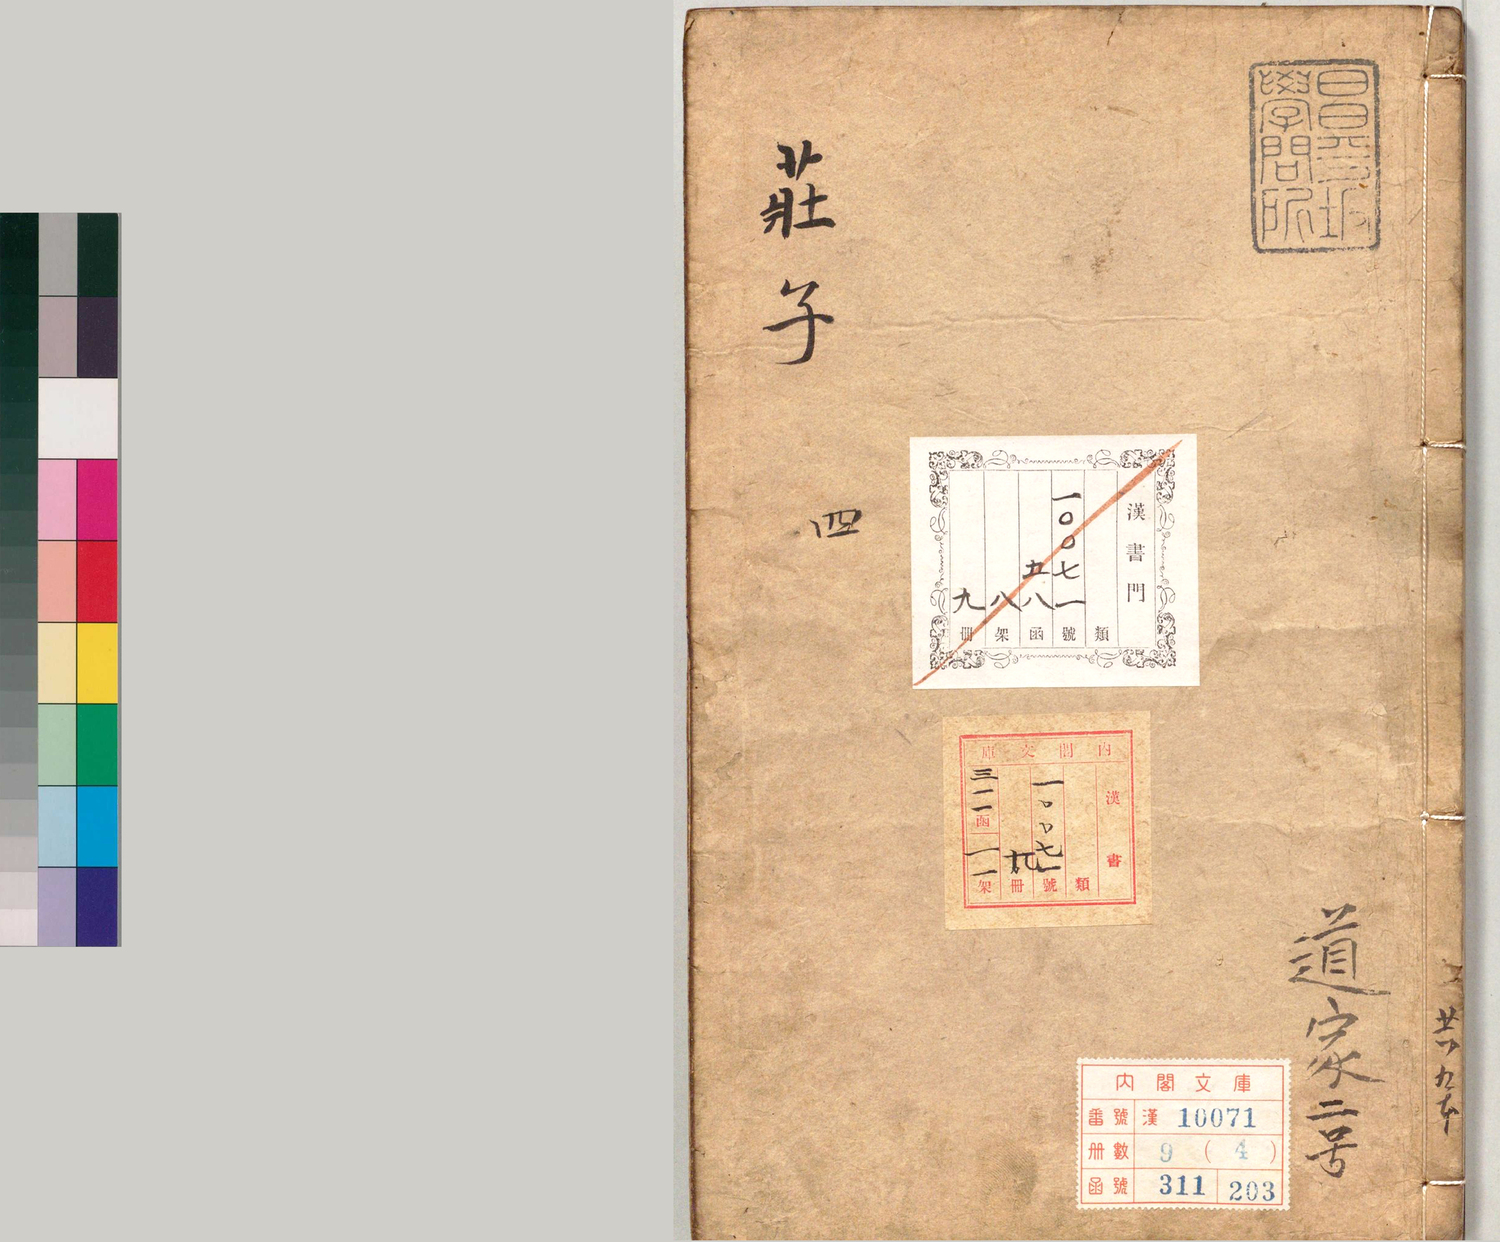 昌平坂
學問所
莊子
四
漢書門
類
一〇〇七一號
五八函
八架
九冊
內閣文庫
漢書
類
一〇〇七一號
九冊
三一一函
一一架
道家二号
內閣文庫
番號 漢 10071
冊數 9 (4)
函號 311 203